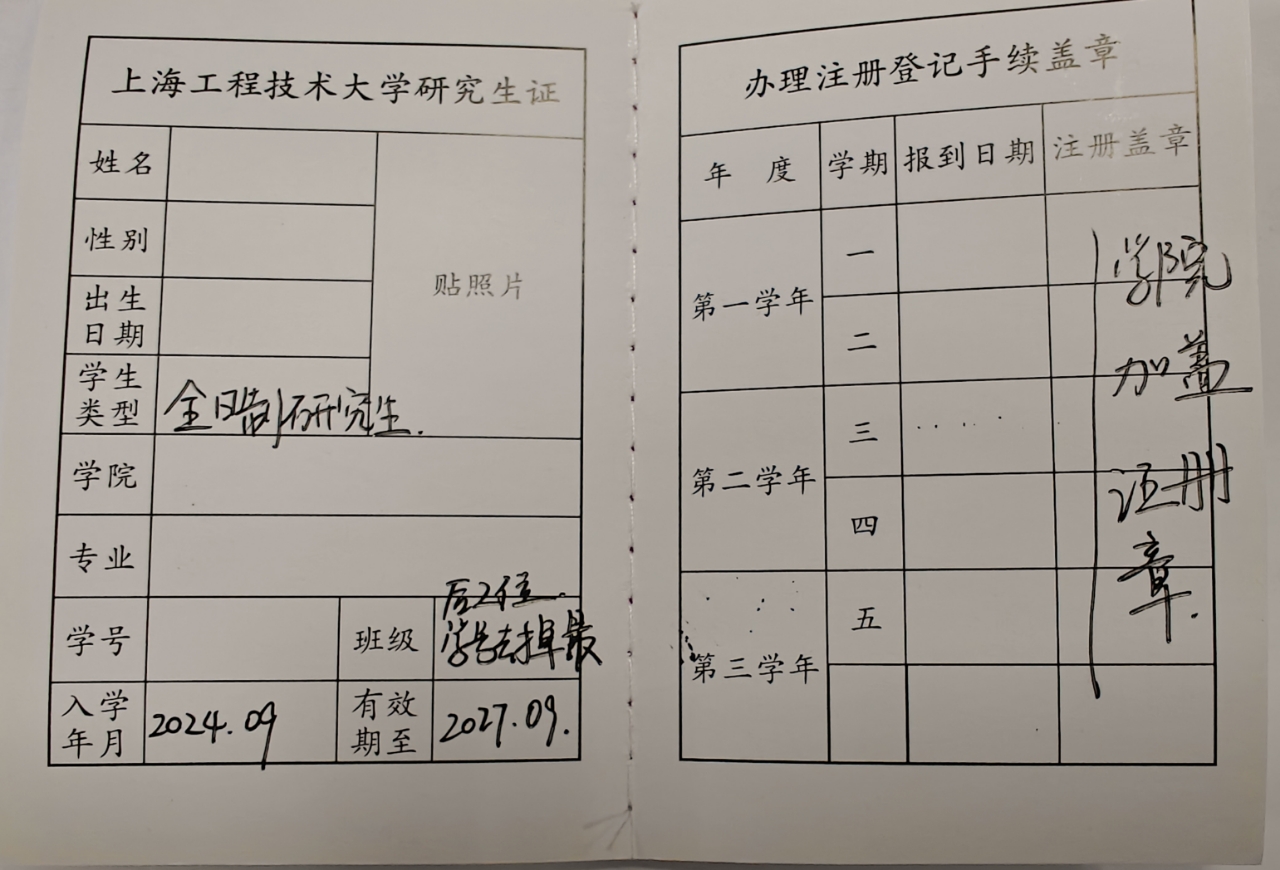 上海工程技术大学研究生证
姓名
贴照片
性别
出生
日期
学生
类型
全日制研究生.
学院
专业
学号
班级
学号去掉最
后2位.
入学
年月
2024.09
有效
期至
2027.09.
办理注册登记手续盖章
年 度 学期 报到日期 注册盖章
第一学年
一
二
第二学年
三
四
第三学年
五
学院
加盖
注册
章.